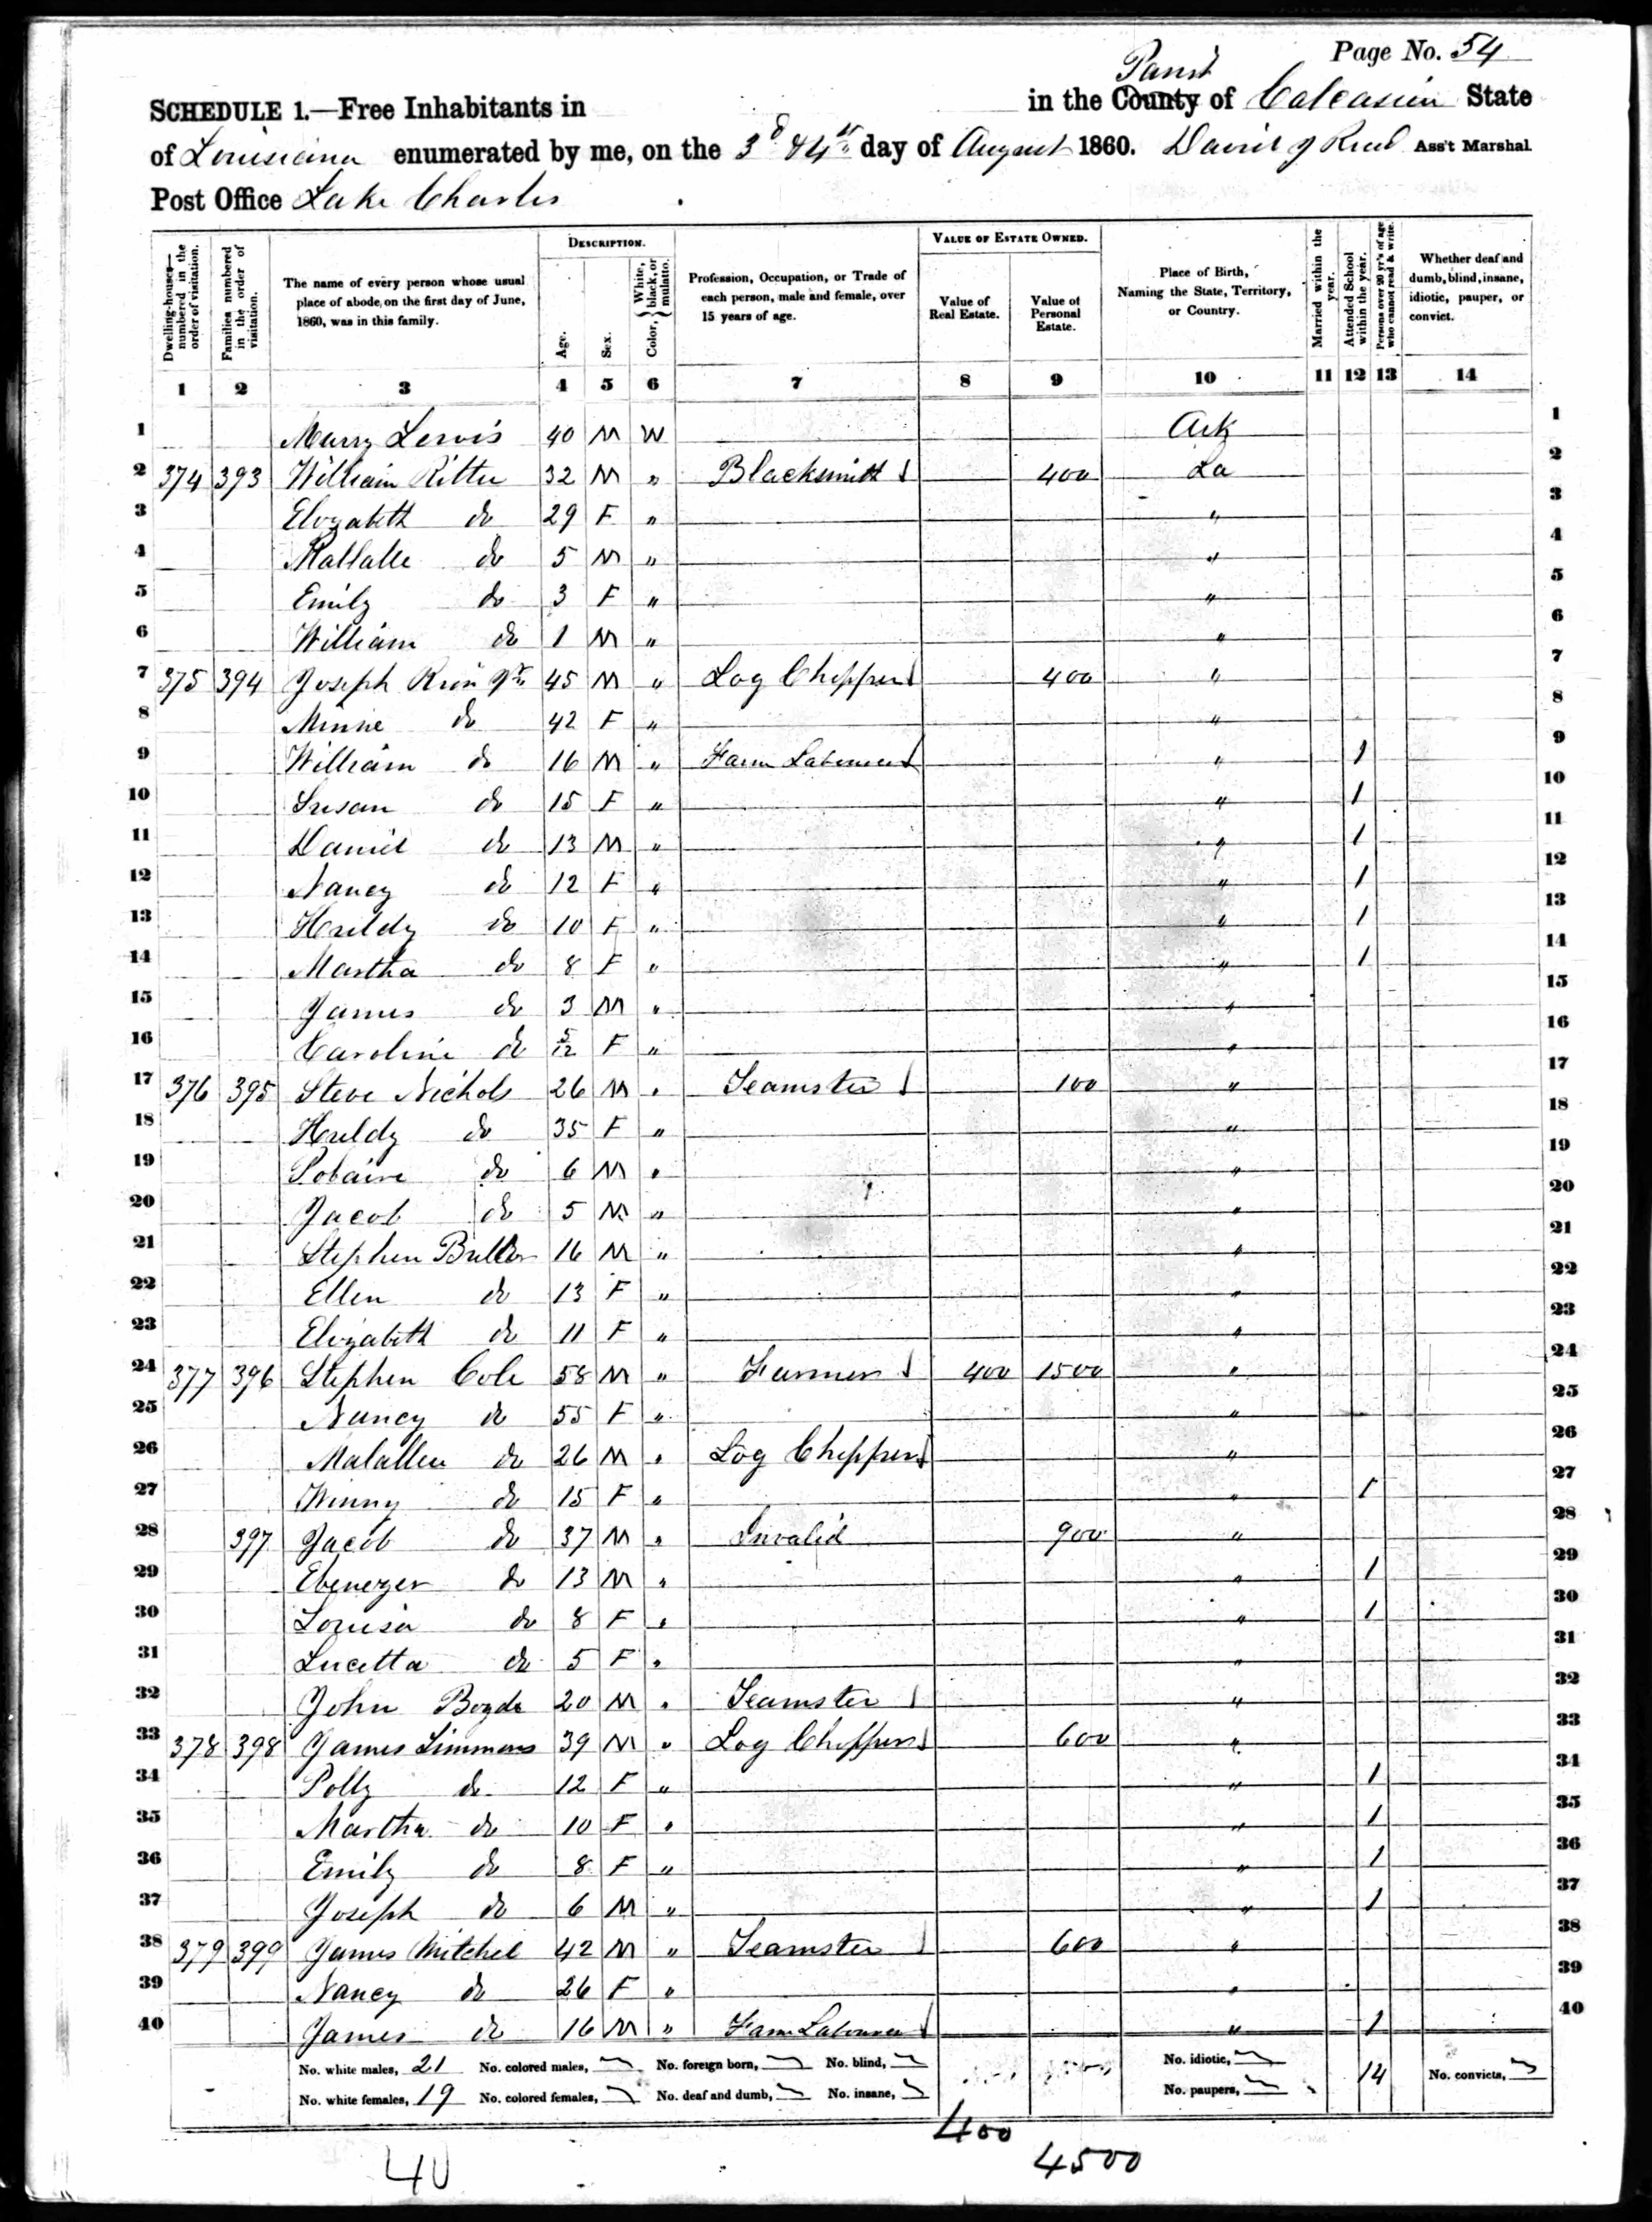 Page No. 54
SCHEDULE 1.—Free Inhabitants in in the County Parish of Calcasieu State
of Louisiana enumerated by me, on the 3d & 4th day of August 1860. Ass't Marshal
Post Office Lake Charles
Dwelling-houses—numbered in the order of visitation.
Families numbered in the order of visitation.
The name of every person whose usual place of abode on the first day of June, 1860, was in this family.
DESCRIPTION.
Age.
Sex.
Color, { White, black, or mulatto.
Profession, Occupation, or Trade of each person, male and female, over 15 years of age.
VALUE OF ESTATE OWNED.
Value of Real Estate.
Value of Personal Estate.
Place of Birth, Naming the State, Territory, or Country.
Married within the year.
Attended School within the year.
Persons over 20 yr's of age who cannot read & write.
Whether deaf and dumb, blind, insane, idiotic, pauper, or convict.
1 2 3 4 5 6 7 8 9 10 11 12 13 14
1 Lewis 40 M W Ark 1
2 374 393 William Ritter 32 M " Blacksmith 400 La 2
3 Elizabeth do 29 F " " 3
4 do 5 M " " 4
5 Emily do 3 F " " 5
6 William do 1 M " " 6
7 375 394 Joseph 45 M " Log Chopper 400 " 7
8 Minnie do 42 F " " 8
9 William do 16 M " Farm Labourer " 1 9
10 Susan do 15 F " " 1 10
11 Daniel do 13 M " " 1 11
12 Nancy do 12 F " " 1 12
13 Huldy do 10 F " " 1 13
14 Martha do 8 F " " 1 14
15 James do 3 M " " 15
16 Caroline do 5/12 F " " 16
17 376 395 Steve Nichols 26 M " Teamster 100 " 17
18 Huldy do 35 F " " 18
19 do 6 M " " 19
20 Jacob do 5 M " " 20
21 Stephen 16 M " " 21
22 Ellen do 13 F " " 22
23 Elizabeth do 11 F " " 23
24 377 396 Stephen Cole 58 M " Farmer 400 1500 " 24
25 Nancy do 55 F " " 25
26 do 26 M " Log Chopper " 26
27 Winny do 15 F " " 1 27
28 397 Jacob do 37 M " Invalid 900 " 28
29 Ebenezer do 13 M " " 1 29
30 Louisa do 8 F " " 1 30
31 Lucetta do 5 F " " 31
32 John 20 M " Teamster " 32
33 378 398 James Simmons 39 M " Log Chopper 600 " 33
34 Polly do 12 F " " 1 34
35 Martha do 10 F " " 1 35
36 Emily do 8 F " " 1 36
37 Joseph do 6 M " " 1 37
38 379 399 James Mitchel 42 M " Teamster 600 " 38
39 Nancy do 26 F " " 39
40 James do 16 M " Farm Labourer " 1 40
No. white males, 21 No. colored males, No. foreign born, No. blind, No. idiotic, 14 No. convicts,
No. white females, 19 No. colored females, No. deaf and dumb, No. insane, No. paupers,
400
4500
40